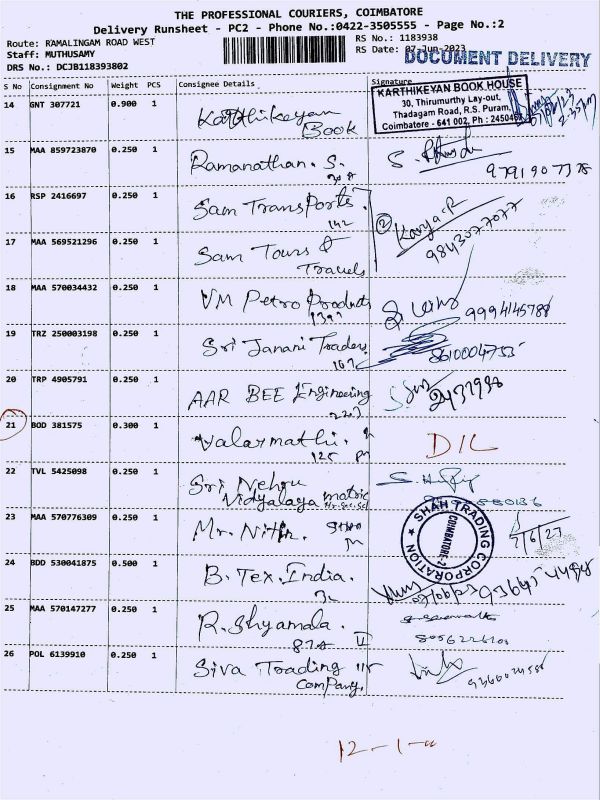 THE PROFESSIONAL COURIERS, COIMBATORE
Delivery Runsheet - PC2 - Phone No.:0422-3505555 - Page No.:2
Route: RAMALINGAM ROAD WEST
Staff: MUTHUSAMY
DRS No.: DCJB118393802
RS No.: 1183938
RS Date: 07-Jun-2023
DOCUMENT DELIVERY
S No Consignment No Weight PCS Consignee Details Signature
KARTHIKEYAN BOOK HOUSE
30, Thirumurthy Lay-out,
Thadagam Road, R.S. Puram,
Coimbatore - 641 002, Ph : 2450
14 GNT 307721 0.900 1 Karthikeyan
Book
15 MAA 859723870 0.250 1 Ramanathan. S.
9791907378
16 RSP 2416697 0.250 1 Sam Transports.
142
② Kavya.R
9843077077
17 MAA 569521296 0.250 1 Sam Tours &
Travels
18 MAA 570034432 0.250 1 VM Petro Products
9994145788
19 TRZ 250003198 0.250 1 Sri Janani Traders
167
8610004755
20 TRP 4905791 0.250 1 AAR BEE Engineering
21 BOD 381575 0.300 1 Valarmathi.
125
D/L
22 TVL 5425098 0.250 1 Sri Nehru
Vidyalaya matric
Hr.Sec.Scl
23 MAA 570776309 0.250 1 Mr. Nithn.
SHAH TRADING CORPORATION
COIMBATORE-2
24 BDD 530041875 0.500 1 B. Tex. India.
25 MAA 570147277 0.250 1 R. Shyamala.
26 POL 6139910 0.250 1 Siva Trading
Company.
12-1-